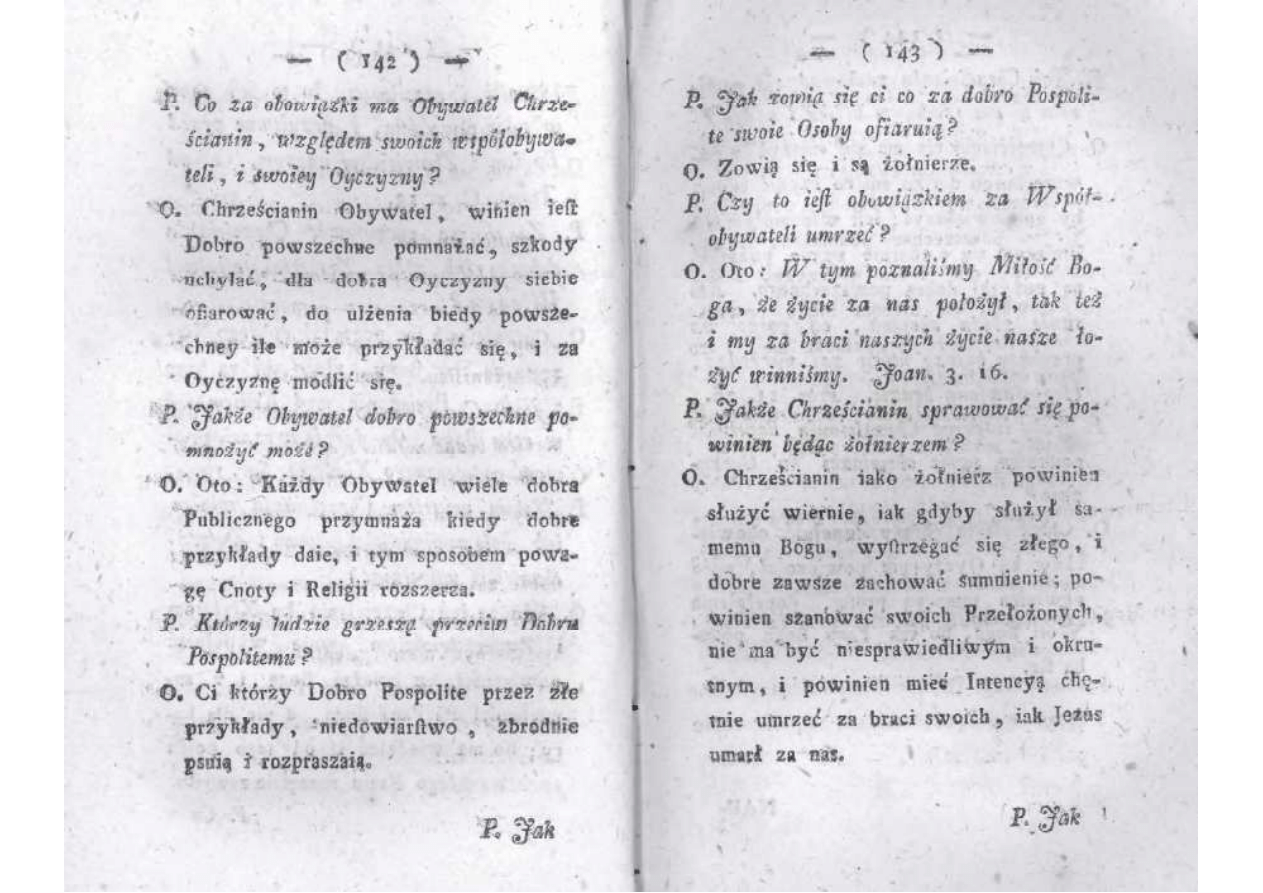 — ( 142 ) —
P. Co za obowiązki ma Obywatel Chrze-
ścianin, względem swoich współobywa-
teli, i swoiey Oyczyzny?
O. Chrześcianin Obywatel, winien ieſt
Dobro powszechne pomnażać, szkody
uchylać, dla dobra Oyczyzny siebie
ofiarować, do ulżenia biedy powsze-
chney ile może przykładać się, i za
Oyczyznę modlić się.
P. Jakże Obywatel dobro powszechne po-
mnożyć może?
O. Oto: Każdy Obywatel wiele dobra
Publicznego przymnaża kiedy dobre
przykłady daie, i tym sposobem powa-
gę Cnoty i Religii rozszerza.
P. Którzy ludzie grzeszą przeciw Dobru
Pospolitemu?
O. Ci którzy Dobro Pospolite przez złe
przykłady, niedowiarſtwo, zbrodnie
psuią i rozpraszaią.
P. Jak
— ( 143 ) —
P. Jak zowią się ci co za dobro Pospoli-
te swoie Osoby ofiaruią?
O. Zowią się i są żołnierze.
P. Czy to ieſt obowiązkiem za Współ-
obywateli umrzeć?
O. Oto: W tym poznaliśmy Miłość Bo-
ga, że życie za nas położył, tak też
i my za braci naszych życie nasze ło-
żyć winniśmy. Joan. 3. 16.
P. Jakże Chrześcianin sprawować się po-
winien będąc żołnierzem?
O. Chrześcianin iako żołnierz powinien
służyć wiernie, iak gdyby służył sa-
memu Bogu, wyſtrzegać się złego, i
dobre zawsze zachować sumnienie; po-
winien szanować swoich Przełożonych,
nie ma być niesprawiedliwym i okru-
tnym, i powinien mieć Intencyą chę-
tnie umrzeć za braci swoich, iak Jezus
umarł za nas.
P. Jak